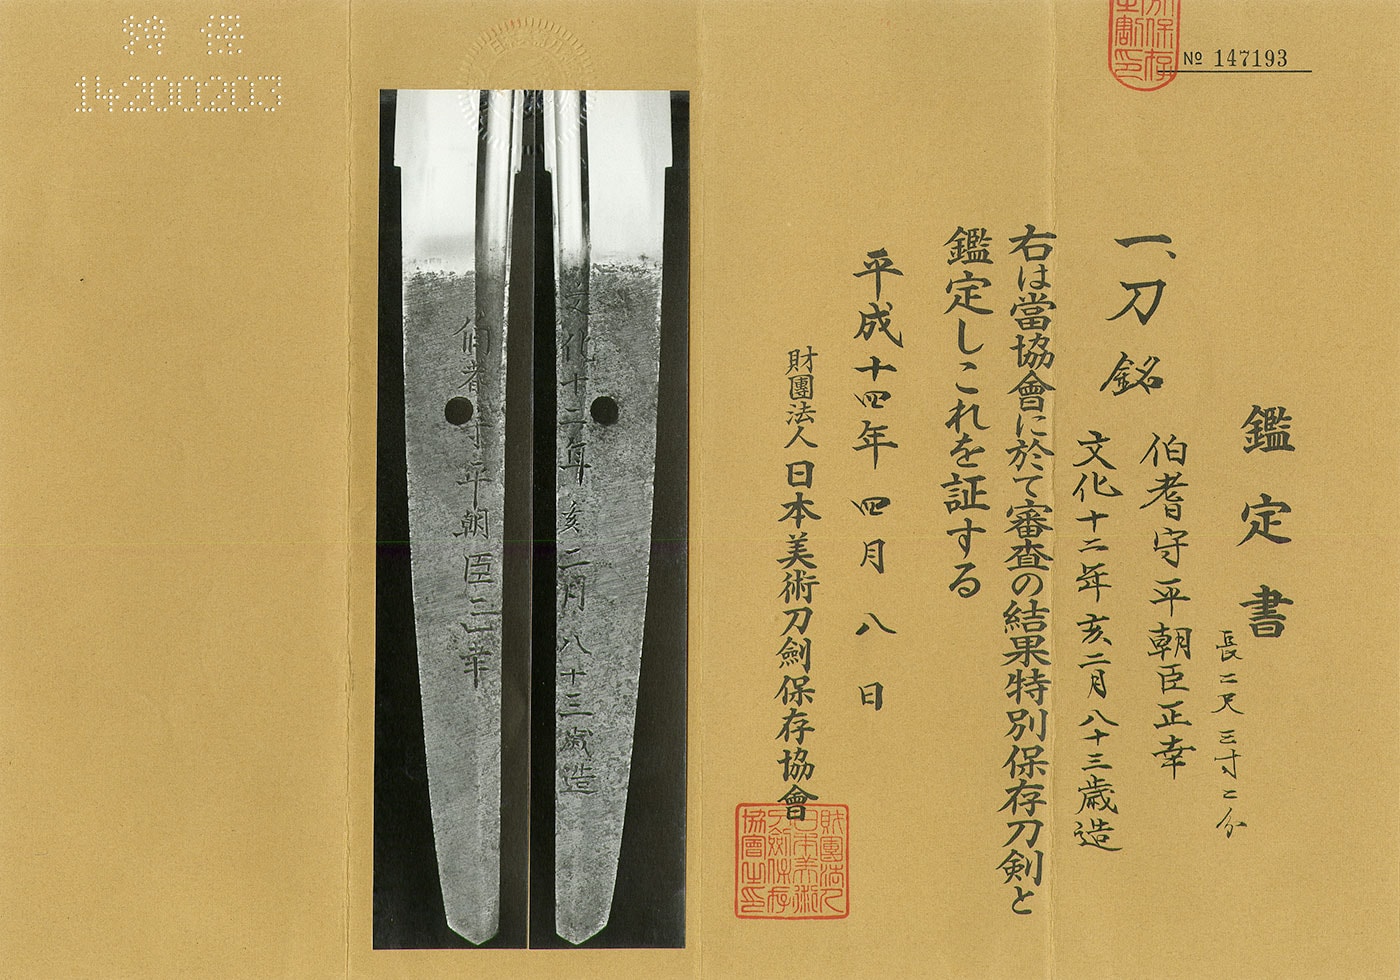 鑑定書
一、刀 銘 伯耆守平朝臣正幸
長二尺三寸二分
文化十二年亥二月八十三歳造
右は當協會に於て審査の結果特別保存刀剣と
鑑定しこれを証する
平成十四年四月八日
財團法人 日本美術刀劍保存協會
財團法人日本美術刀劍保存協會之印
№ 147193
特保
14200203
文化十二年亥二月八十三歳造
伯耆守平朝臣正幸